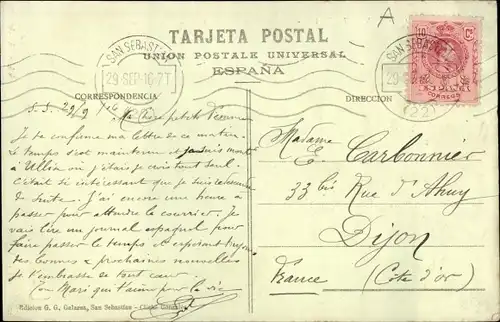 TARJETA POSTAL
UNION POSTALE UNIVERSAL
ESPAÑA
CORRESPONDENCIA
DIRECCION
A
SAN SEBASTIAN
29 SEP 16 7T
SAN SEBASTIAN
29 SEP
(22)
10 Cs
ESPAÑA
CORREOS
S.S. 29/9
Ma chère petite femme
Je te confirme ma lettre de ce matin.
Le temps s'est maintenu et je suis monté
à Ullia où j'étais je crois tout seul.
C'était si intéressant que je suis redescendu
de suite. J'ai encore une heure à
passer pour attendre le courrier. Je
vais lire un journal espagnol pour
faire passer le temps et espérant
des bonnes & prochaines nouvelles
je t'embrasse de tout cœur.
Ton Mari qui t'aime pour la vie
Madame
E. Carbonnier
33 bis Rue d'Ahuy
Dijon
France (Côte d'or)
Edicion G. G. Galarza, San Sebastian - Cliché González